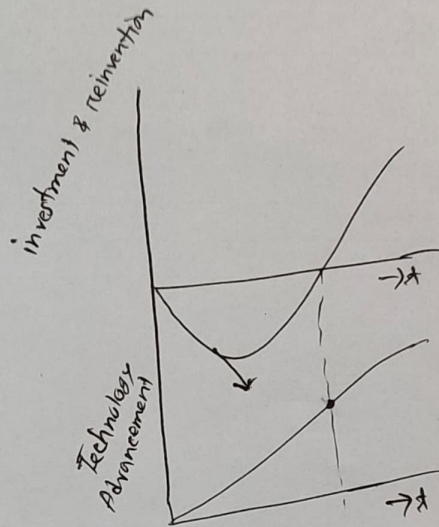 investment & reinvention
→t
Technology
Advancement
→t